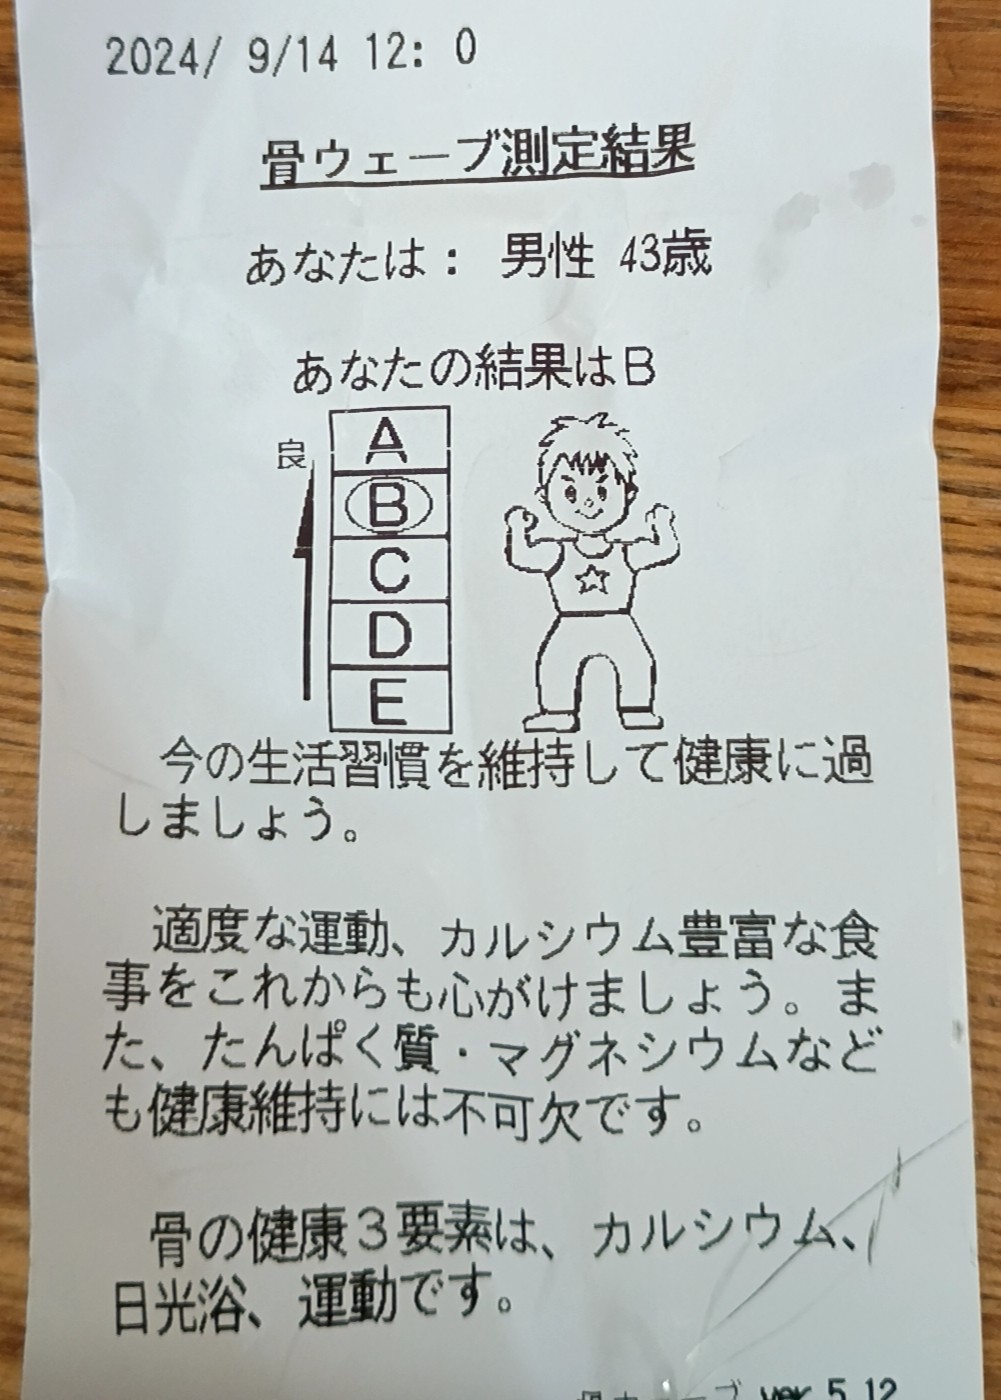 2024/ 9/14 12: 0
骨ウェーブ測定結果
あなたは： 男性 43歳
あなたの結果はB
良
A
B
C
D
E
今の生活習慣を維持して健康に過
しましょう。
適度な運動、カルシウム豊富な食
事をこれからも心がけましょう。ま
た、たんぱく質・マグネシウムなど
も健康維持には不可欠です。
骨の健康３要素は、カルシウム、
日光浴、運動です。
骨ウェーブ ver 5.12